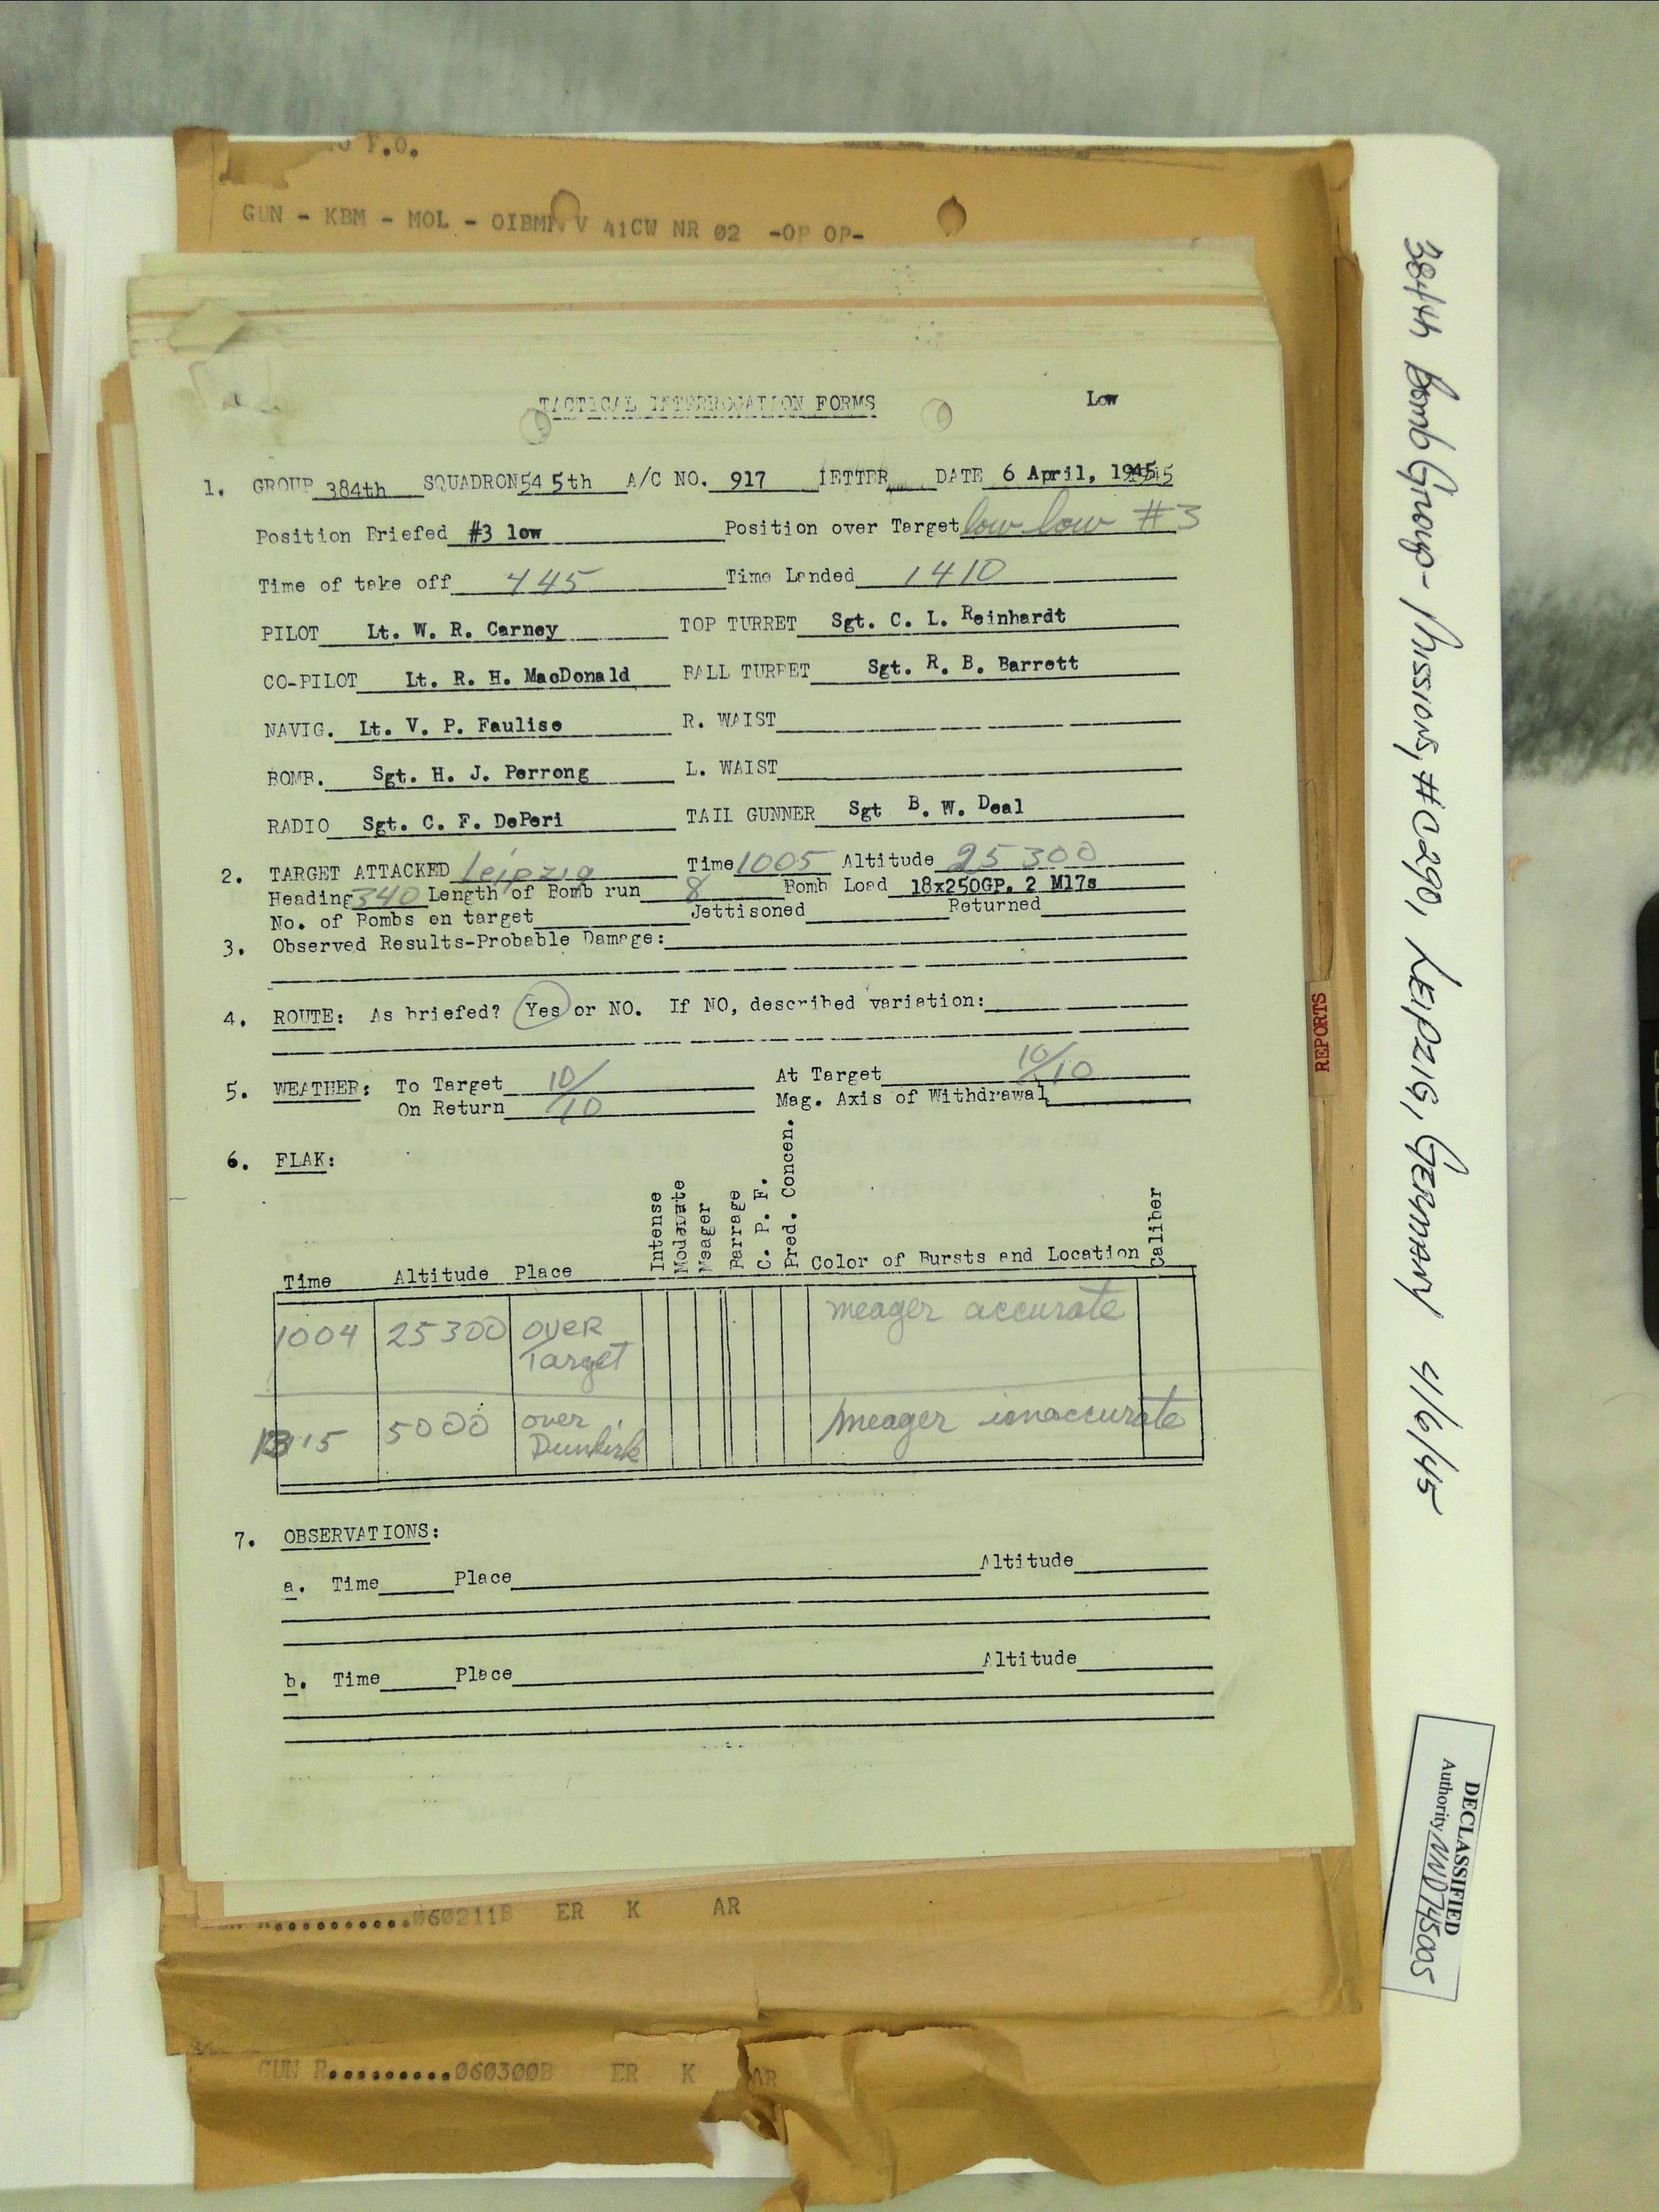 F.O.
GUN - KBM - MOL - OIBMR V 41CW NR 02 -OP OP-
TACTICAL INTERROGATION FORMS Low
1. GROUP 384th SQUADRON 545th A/C NO. 917 LETTER DATE 6 April, 1945
Position Briefed #3 low Position over Target low low #3
Time of take off 445 Time Landed 1410
PILOT Lt. W. R. Carney TOP TURRET Sgt. C. L. Reinhardt
CO-PILOT Lt. R. H. MacDonald BALL TURRET Sgt. R. B. Barrett
NAVIG. Lt. V. P. Faulise R. WAIST
BOMB. Sgt. H. J. Perrong L. WAIST
RADIO Sgt. C. F. DePeri TAIL GUNNER Sgt B. W. Deal
2. TARGET ATTACKED Leipzig Time 1005 Altitude 25300
Heading 340 Length of Bomb run 8 Bomb Load 18x250GP. 2 M17s
No. of Bombs on target Jettisoned Returned
3. Observed Results-Probable Damage:
4. ROUTE: As briefed? Yes or NO. If NO, described variation:
5. WEATHER: To Target 10/ At Target 10/10
On Return /10 Mag. Axis of Withdrawal
6. FLAK:
Time Altitude Place Intense Moderate Meager Barrage C. P. F. Pred. Concen. Color of Bursts and Location Caliber
1004 25300 over Target meager accurate
15 5000 over Dunkirk meager innaccurate
7. OBSERVATIONS:
a. Time Place Altitude
b. Time Place Altitude
060211B ER K AR
GUN R..........060300B ER K AR
REPORTS
384th Bomb Group - Missions, #0290, LEIPZIG, GERMANY 4/6/45
DECLASSIFIED
Authority NND745005